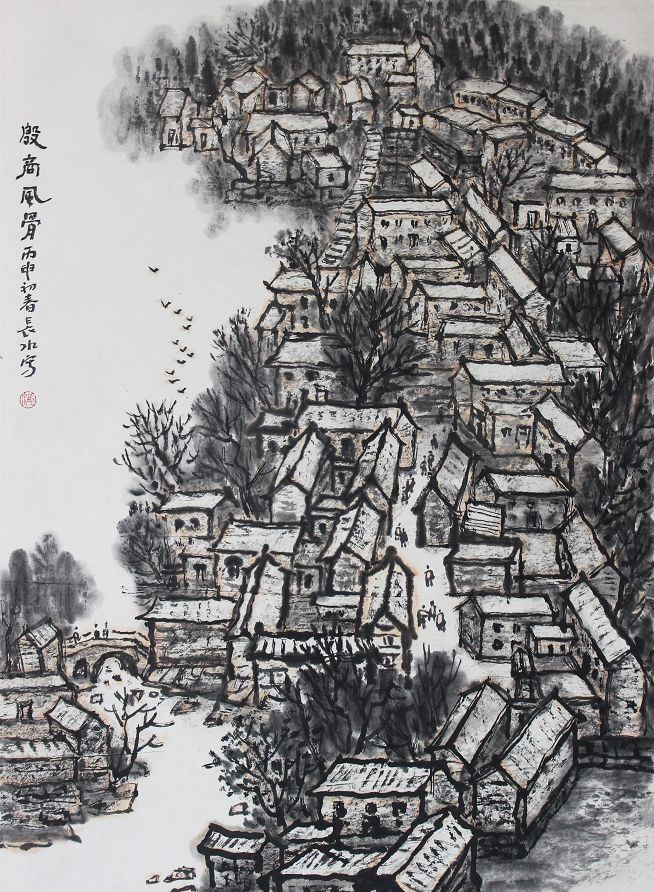 殷商风骨丙申初春長水写